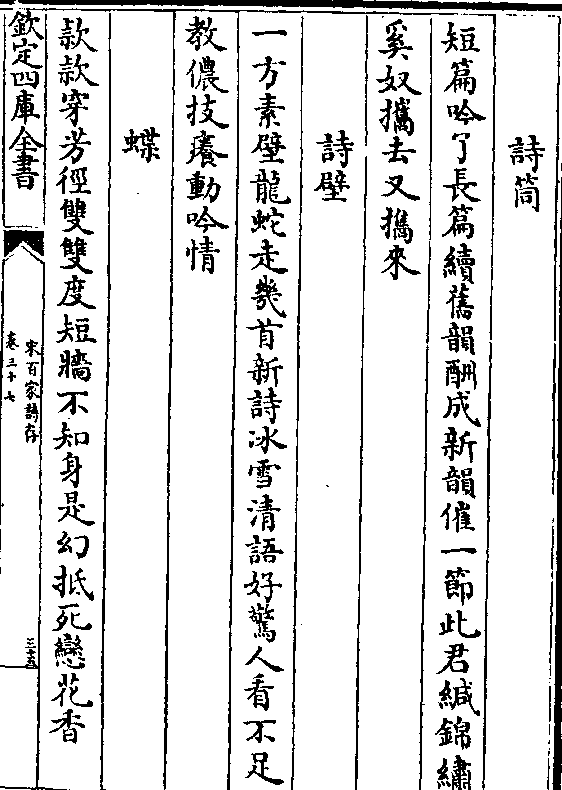 詩筒
短篇吟了長篇續舊韻酬成新韻催一節此君緘錦繡
奚奴攜去又攜來
詩壁
一方素壁龍蛇走幾首新詩冰雪清語好驚人看不足
教儂技癢動吟情
蝶
款款穿芳徑雙雙度短牆不知身是幻抵死戀花香
欽定四庫全書
宋百家詩存
卷三十七
三十五